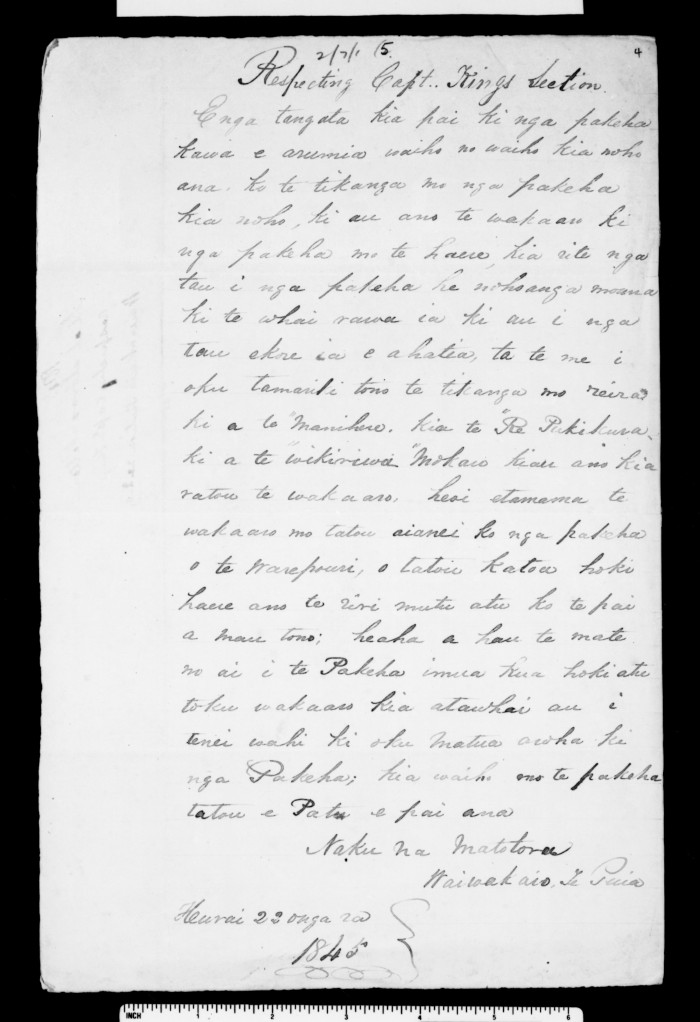 2/7/1 15.
4
Respecting Capt.. Kings Section.
Enga tangata kia pai ki nga pakeha
kawa e arumia waiho no waiho kia noho
ana. ko te tikanga mo nga pakeha
kia noho, ki au ano te wakaaro ki
nga pakeha mo te haere, kia rite nga
tau i nga pakeha he nohoanga moana
ki te whai rawa ia ki au i nga
tau ekore ia e ahatia, ta te me i
oku tamariki tono te tikanga mo reira
ki a te "Manihera. kia te "Re Pakikura-
ki a te "wikiriwa "Mokau kiau ano kia
ratou te wakaaro, heoi etamama te
wakaaro mo tatou aianei ko nga pakeha
o te Warepouri, o tatou katoa hoki
haere ano te riri mutu atu ko te pai
a mau tono; heaha a hau te mate
no ai i te Pakeha imua kua hoki atu
toku wakaaro kia atawhai au i
tenei wahi ki oku Matua aroha ki
nga Pakeha; kia waiho mo te pakeha
tatou e Patu e pai ana
Naku na Matotoru
Waiwakaio, Te Puia
Hurai 22 onga ra
1845
INCH 1 2 3 4 5 6